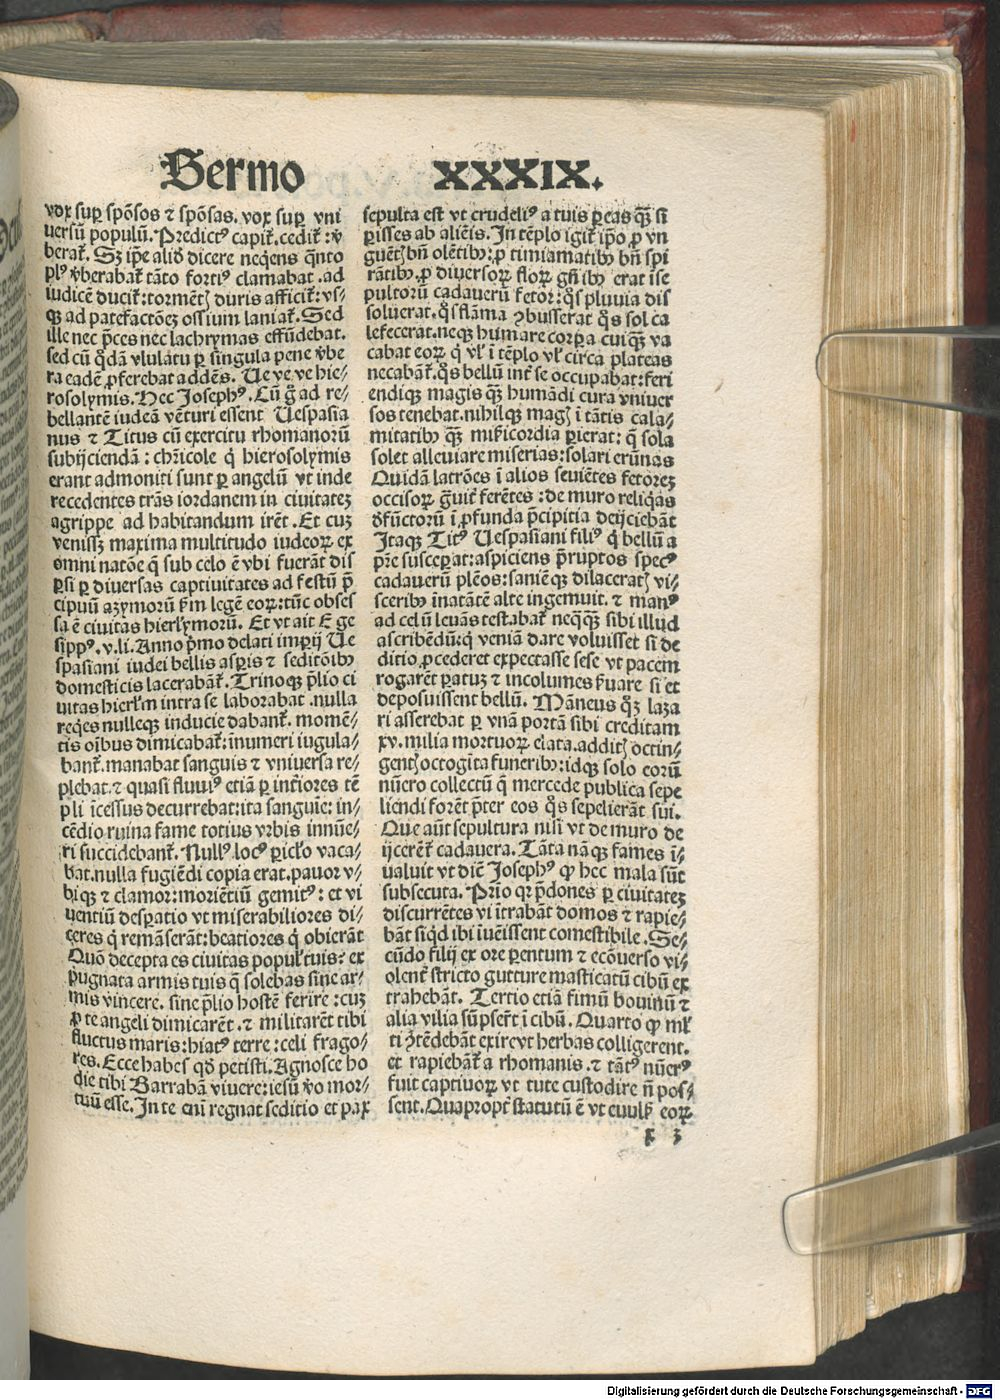 Sermo XXXIX.
vox sup̱ spōsos ⁊ spōsas. vox sup̱ vni
uersū populū. Predictꝰ capit̄. cedit̄: v̄
berat̄. Sz ip̄e aliđ dicere neq̄ens q̄nto
plꝰ v̄berabat̄ tāto fortiꝰ clamabat. ad
iudicē ducit̄: tormētꝭ duris afficit̄: vs⸗
qꝫ ad patefactōeꝫ ossium laniat̄. Sed
ille nec p̄ces nec lachrymas effūdebat.
sed cū q̊dā vlulatu ꝑ singula pene v̄be
ra eadē ꝓferebat addēs. Ue ve ve hie⸗
rosolymis. Hec Josephꝰ. Cū g̊ ad re⸗
bellantē iudeā vēturi essent Uespasia
nus ⁊ Titus cū exercitu rhomanorū
subijciendā: chr̄icole q̇ hierosolymis
erant admoniti sunt ꝑ angelū vt inde
recedentes trās iordanem in ciuitateꝫ
agrippe ad habitandum irēt. Et cuꝫ
venissꝫ maxima multitudo iudeoꝝ ex
omni natōe q̄ sub celo ē vbi fuerāt dis
ꝑsi ꝑ diuersas captiuitates ad festū p̄
cipuū azymorū ẜm legē eoꝝ: tūc obses
sa ē ciuitas hierl̄ymorū. Et vt ait Ege
sippꝰ. v. li. Anno p̄mo delati imꝑij Ue
spasiani iudei bellis asꝑis ⁊ seditōibꝰ
domesticis lacerabāt̄. Trinoqꝫ p̄lio ci
uitas hierl̄m intra se laborabat. nulla
req̇es nulleqꝫ inducie dabant̄. momē⸗
tis oībus dimicabat̄: īnumeri iugula⸗
bant̄. manabat sanguis ⁊ vniuersa re⸗
plebat. ⁊ quasi fluuiꝰ etiā ꝑ int̄iores tē
pli īcessus decurrebat: ita sanguīe: in⸗
cēdio ruina fame totius vrbis innūe⸗
ri succidebant̄. Nullꝰ locꝰ ꝑicl̄o vaca⸗
bat. nulla fugiēdi copia erat. pauor v⸗
biqꝫ ⁊ clamor: moriētiū gemitꝰ: et vi
uentiū desꝑatio vt miserabiliores di⸗
ceres q̇ remāserāt: beatiores q̇ obierāt
Quō decepta es ciuitas popul̄ tuis: ex
pugnata armis tuis q̄ solebas sine ar⸗
mis vincere. sine p̄lio hostē ferire: cuꝫ
ꝓ te angeli dimicarēt. ⁊ militarēt tibi
fluctus maris: hiatꝰ terre: celi frago⸗
res. Ecce habes qđ petisti. Agnosce ho
die tibi Barrabā viuere: iesū v̊o mor⸗
tuū esse. In te eni̅ regnat seditio et pax
sepulta est vt crudeliꝰ a tuis ꝑeas q̄ꝫ si
ꝑisses ab aliēis. In tēplo igit̄ ip̄o ꝓ vn
guētꝭ bn̄ olētibꝰ: ꝓ timiamatibꝰ bn̄ spi
rātibꝰ. ꝓ diuersoꝝ floꝝ gn̄ibꝰ erat īse
pultorū cadauerū fetor: q̊s pluuia dis
soluerat. q̊s flāma ꝯbusserat q̊s sol ca
lefecerat. neqꝫ humare corꝑa cuiqꝫ va
cabat eoꝝ q̇ vl̄ ī tēplo vl̄ circa plateas
necabāt̄. q̊s bellū int̄ se occupabat: feri
endiqꝫ magis q̄ꝫ humādi cura vniuer
sos tenebat. nihilqꝫ magꝭ ī tātis cala⸗
mitatibꝰ q̄ꝫ mīsericordia ꝑierat: q̄ sola
solet alleuiare miserias: solari erūnas
Quidā latrōes ī alios seuiētes fetoreꝫ
occisoꝝ g̊uit̄ ferētes: de muro reliq̇as
đfūctorū ī ꝓfunda p̄cipitia deijciebāt
Itaqꝫ Titꝰ Uespasiani filiꝰ q̇ bellū a
p̄re susceꝑat: aspiciens p̄ruptos specꝰ
cadauerū plēos: saniēqꝫ dilaceratꝭ vi⸗
sceribꝰ īnatātē alte ingemuit. ⁊ manꝰ
ad celū leuās testabat̄ neq̄qꝫ sibi illud
ascribēdū: q̇ veniā dare voluisset si de
ditio ꝓcederet expectasse sese vt pacem
rogarēt ꝑatuꝫ ⁊ incolumes ẜuare si et
deposuissent bellū. Māneus q̊ꝫ laza
ri asserebat ꝑ vnā portā sibi creditam
xv. milia mortuoꝝ elata. additꝭ octin⸗
gentꝭ octogīta funeribꝰ: idqꝫ solo eorū
nūero collectū q̇ mercede publica sepe
liendi forēt p̄ter eos q̊s sepelierāt sui.
Que aūt sepultura nisi vt de muro de
ijcerēt̄ cadauera. Tāta nāqꝫ fames ī⸗
ualuit vt dic̄ Josephꝰ ꝙ hec mala sūt
subsecuta. Prīo qꝛ p̄dones ꝑ ciuitateꝫ
discurrētes vi ītrabāt domos ⁊ rapie⸗
bāt siqd ibi īuēissent comestibile. Se⸗
cūdo filij ex ore ꝑentum ⁊ ecōuerso vi⸗
olent̄ stricto gutture masticatū cibū ex
trahebāt. Tertio etiā fimū bouinū ⁊
alia vilia sūpser̄t ī cibū. Quarto ꝙ ml̄
ti ꝯtēdebāt exire vt herbas colligerent.
et rapiebāt̄ a rhomanis. ⁊ tātꝰ nūerꝰ
fuit captiuoꝝ vt tute custodire n̄ pos⸗
sent. Quapropt̄ statutū ē vt euul̄s̄ eoꝝ
x 3
Digitalisierung gefördert durch die Deutsche Forschungsgemeinschaft - DFG